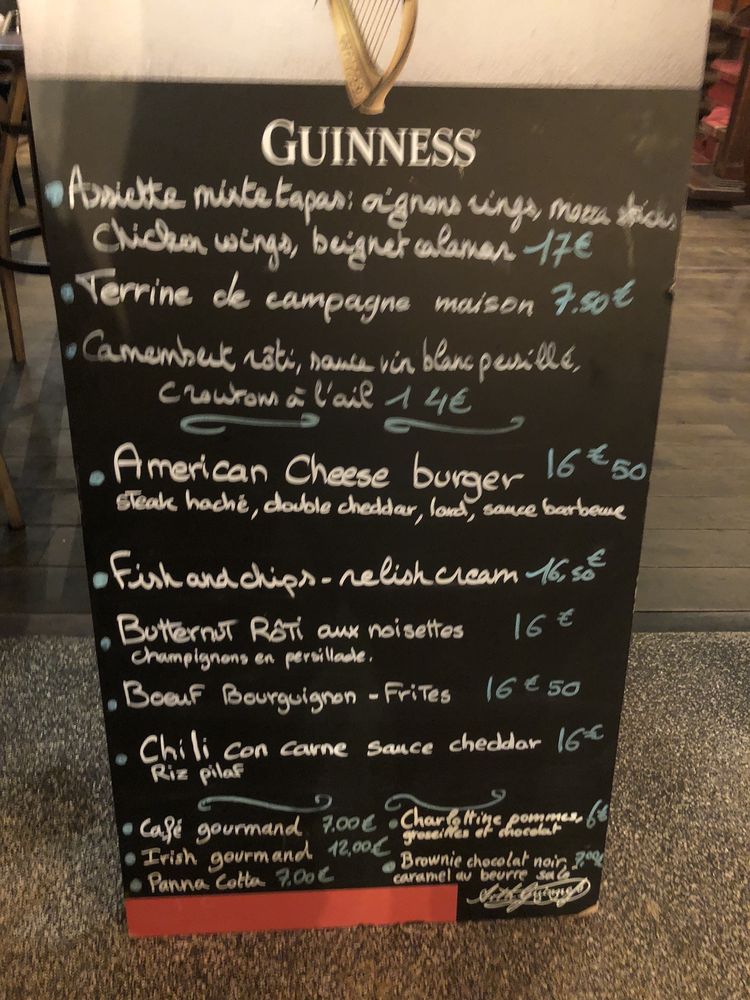 GUINNESS
Assiette mixte tapas: oignons rings, mozza sticks
chicken wings, beignet calamar 17€
Terrine de campagne maison 7.50€
Camembert rôti, sauce vin blanc persillée,
croutons à l'ail 14€
American Cheese burger 16€50
steak haché, double cheddar, lard, sauce barbecue
Fish and chips - relish cream 16,50€
Butternut Rôti aux noisettes 16€
champignons en persillade.
Boeuf Bourguignon - Frites 16€50
Chili con carne sauce cheddar 16€
Riz pilaf
Café gourmand 7.00€
Irish gourmand 12,00€
Panna Cotta 7.00€
Charlottine pommes, 6€
groseilles et chocolat
Brownie chocolat noir, 7,00€
caramel au beurre salé
Arth. Guinness